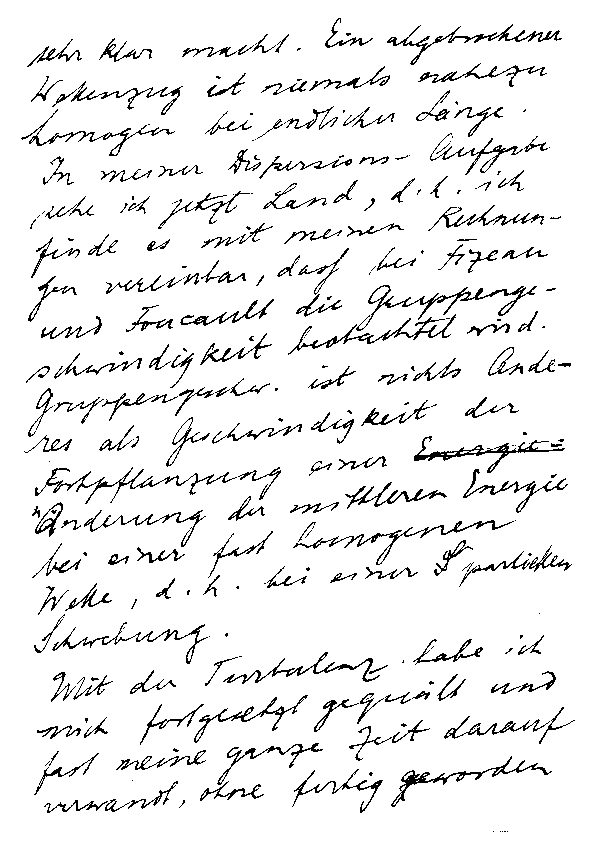 sehr klar macht. Ein abgebrochener
Wellenzug ist niemals nahezu
homogen bei endlicher Länge.
In meiner Dispersions-Aufgabe
sehe ich jetzt Land, d.h. ich
finde es mit meinen Rechnun-
gen vereinbar, dass bei Fizeau
und Foucault die Gruppenge-
schwindigkeit beobachtet wird.
Gruppengeschw. ist nichts Ande-
res als Geschwindigkeit der
Fortpflanzung einer Energie=
Änderung der mittleren Energie
bei einer fast homogenen
Welle, d.h. bei einer
Schwebung.
Mit der Turbulenz habe ich
mich fortgesetzt gequält und
fast meine ganze Zeit darauf
verwandt, ohne fertig geworden